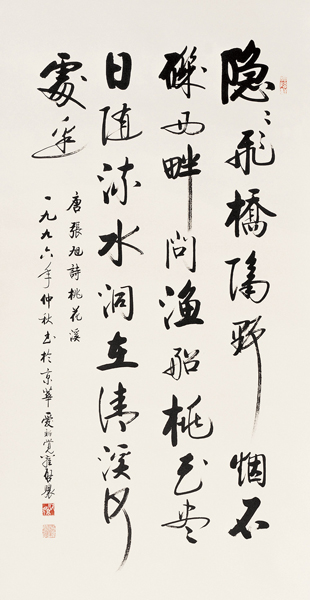 隐〻飛橋隔野烟石
磯西畔问渔船桃花尽
日随流水洞在清溪何
處边
唐張旭詩桃花溪
一九九六年仲秋书於京華愛新覺羅啟驤